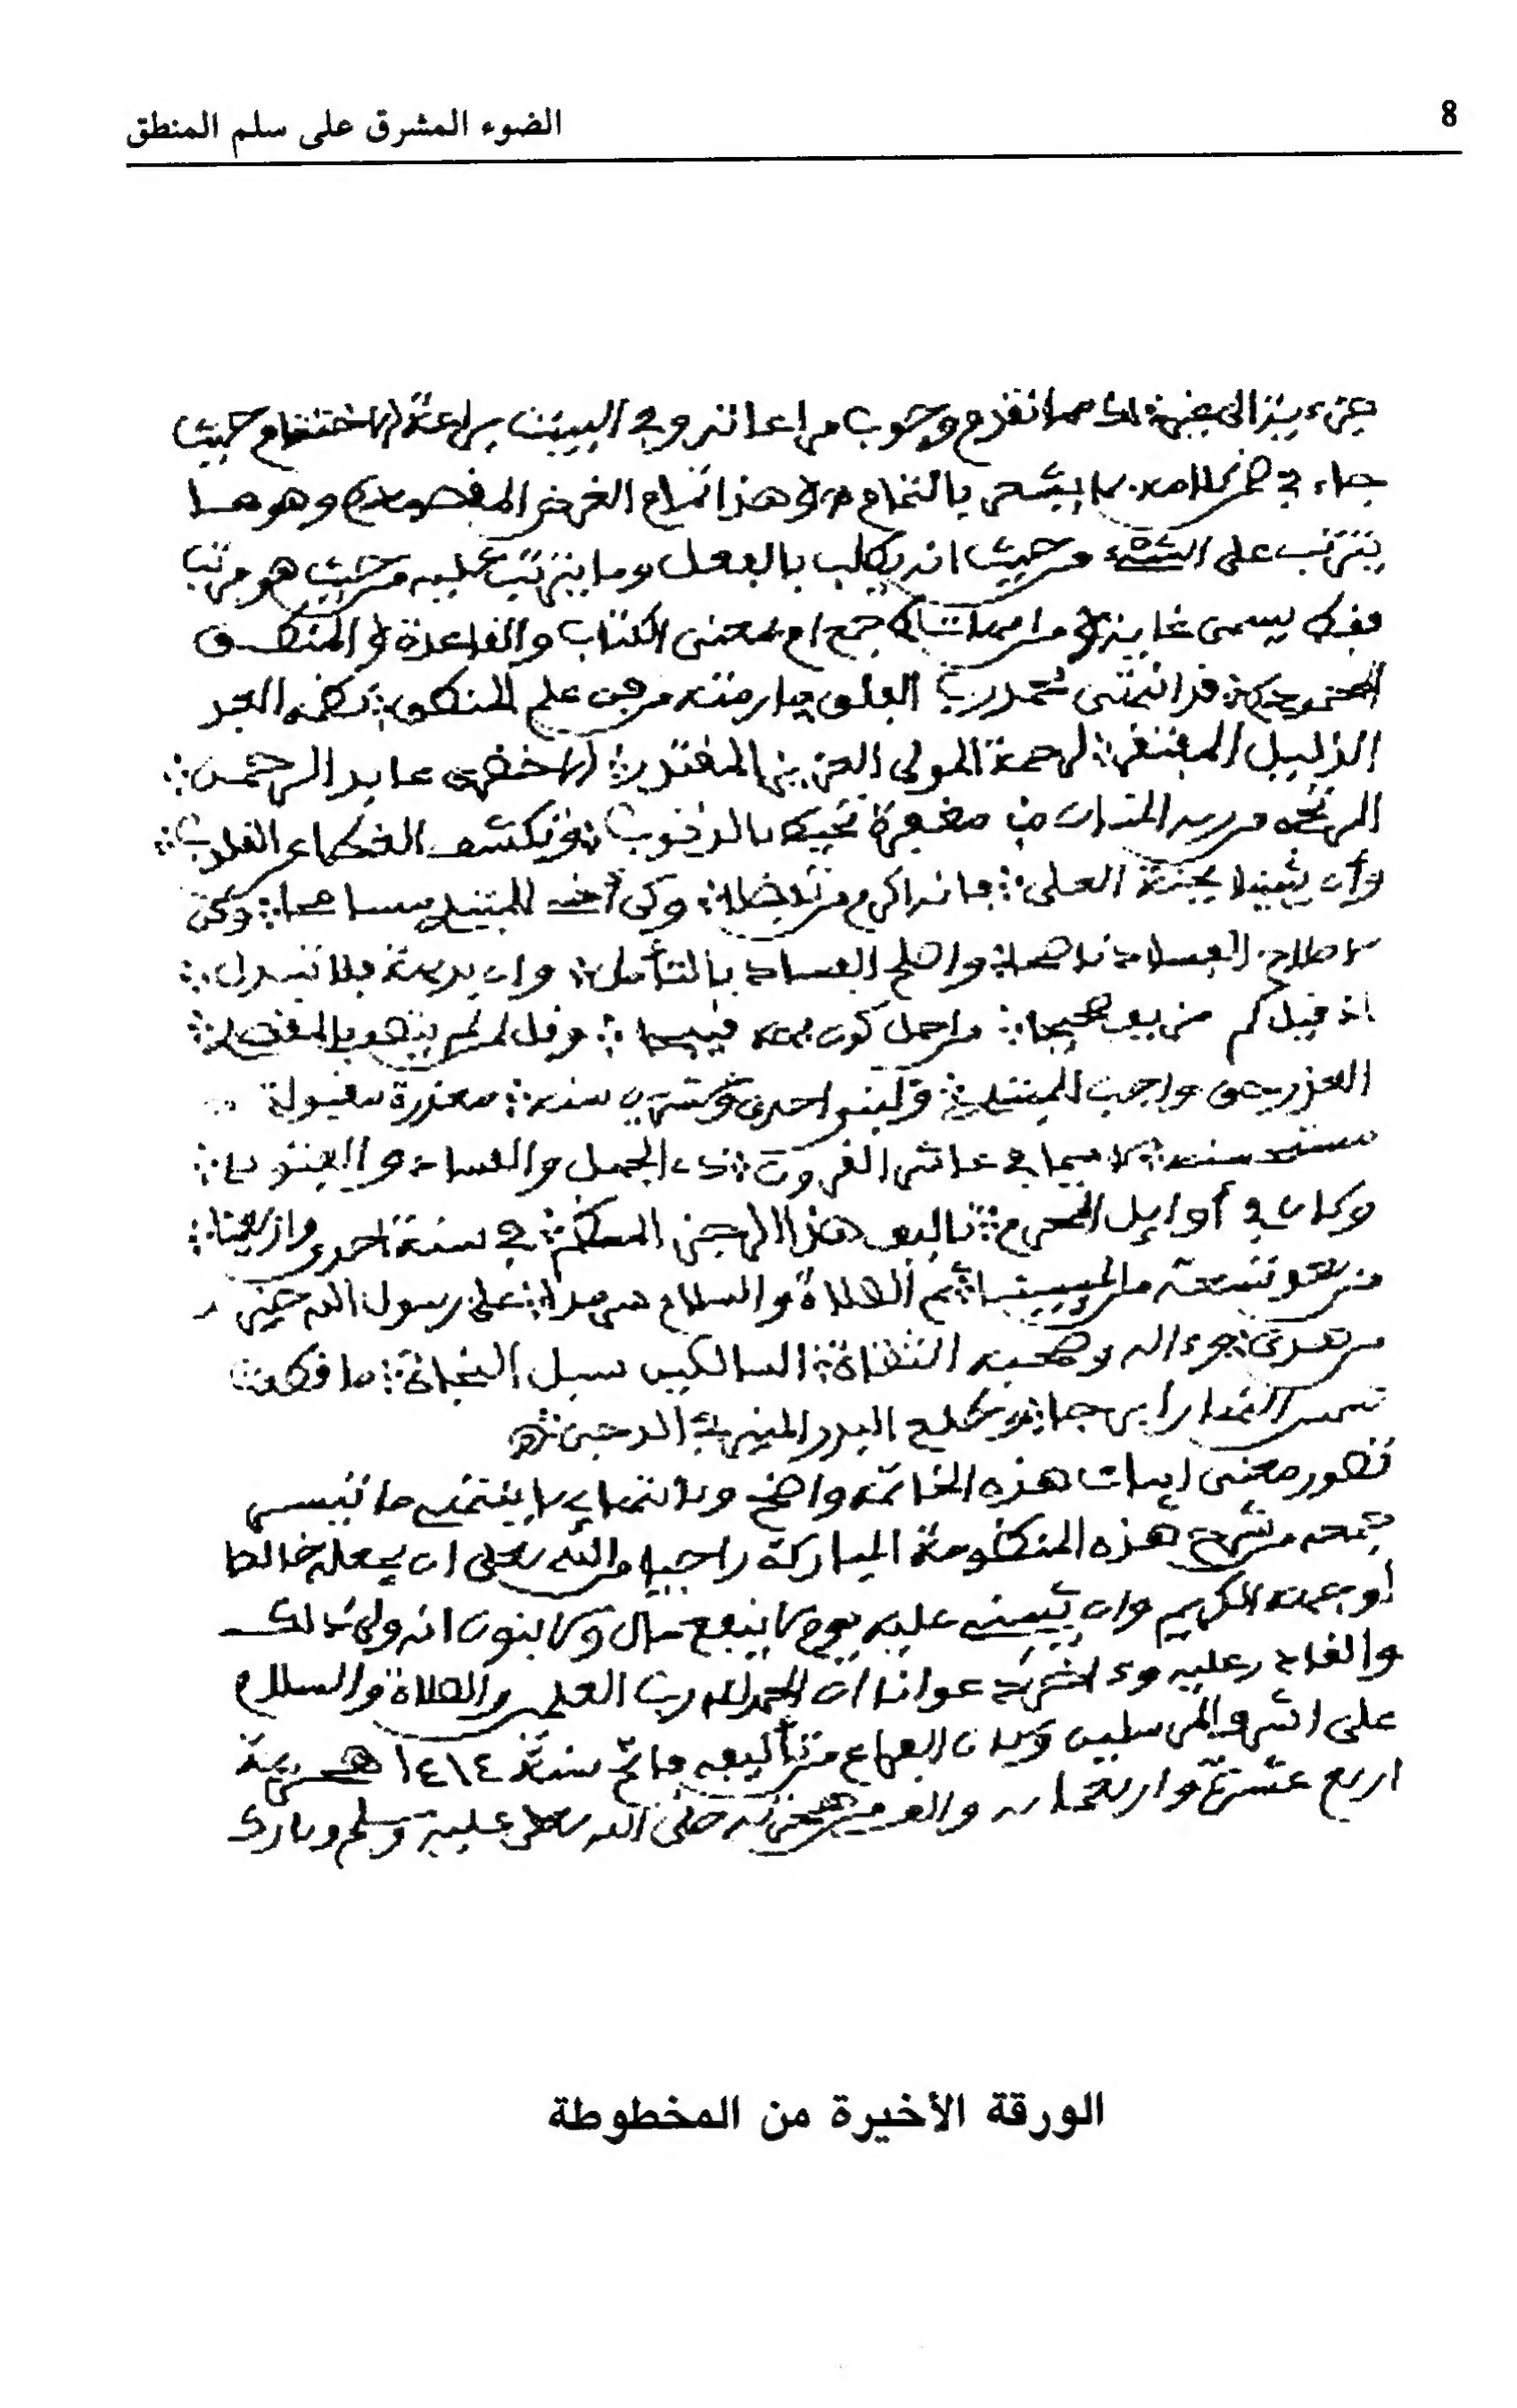 8
الضوء المشرق على سلم المنطق
مما تقدم وجوب مراعاته وفي البيت براعة الاختتام حيث
جاء في كلامه بما يشعر بالتمام هذا تمام الغرض المقصود وهو ما
يترتب على الشيء من حيث انه يطلب بالفعل وما يترتب عليه من حيث هو مرتب
فقط يسمى غاية من امهات جمع ام بمعنى الكتاب والقاعدة المنطق
المحمود قد انتهى بحمد رب الفلق ما رمته من فن علم المنطق نظمه العبد
الذليل المفتقر لرحمة المولى العزيز المقتدر الاخضري عابد الرحمن
المرتجي من ربه المنان مغفرة تحيط بالذنوب وتكشف الغطا عن القلوب
وأن يثيبنا بجنة العلى فانه اكرم من تفضلا وكن أخي للمبتدي مسامحا وكن
لاصلاح الفساد ناصحا واصلح الفساد بالتأمل وان بديهة فلا تبدل
اذ قيل كم مزيف صحيحا لاجل كون فهمه قبيحا وقل لمن لم ينتصف لمقصدي
العذر حق واجب للمبتدي ولبني احدى وعشرين سنه معذرة مقبولة
مستحسنه لا سيما في عاشر القرون ذي الجهل والفساد والفتون
وكان في أوائل المحرم تاليف هذا الرجز المنظم في سنة احدى واربعين
من بعد تسعة من المئين ثم الصلاة والسلام سرمدا على رسول الله خير
من هدى وءاله وصحبه الثقاة السالكين سبل النجاة ما قطعت
شمس النهار ابرجا وطلع البدر المنير في الدجى
تصور معنى ابيات هذه الخاتمة واضح وبانتهائها انتهى ما تيسر
جمعه من شرح هذه المنظومة المباركة راجيا من الله تعلى ان يجعله خالصا
لوجهه الكريم وان يثيبني عليه يوم لا ينفع مال ولا بنون انه ولي ذلك
والقادر عليه وءاخر دعوانا ان الحمد لله رب العلمين والصلاة والسلام
على اشرف المرسلين وكان الفراغ من تأليفه فاتح سنة ١٤١٤ هـ
اربع عشرة واربعمائة والف من هجرته صلى الله تعلى عليه وسلم وبارك
الورقة الأخيرة من المخطوطة